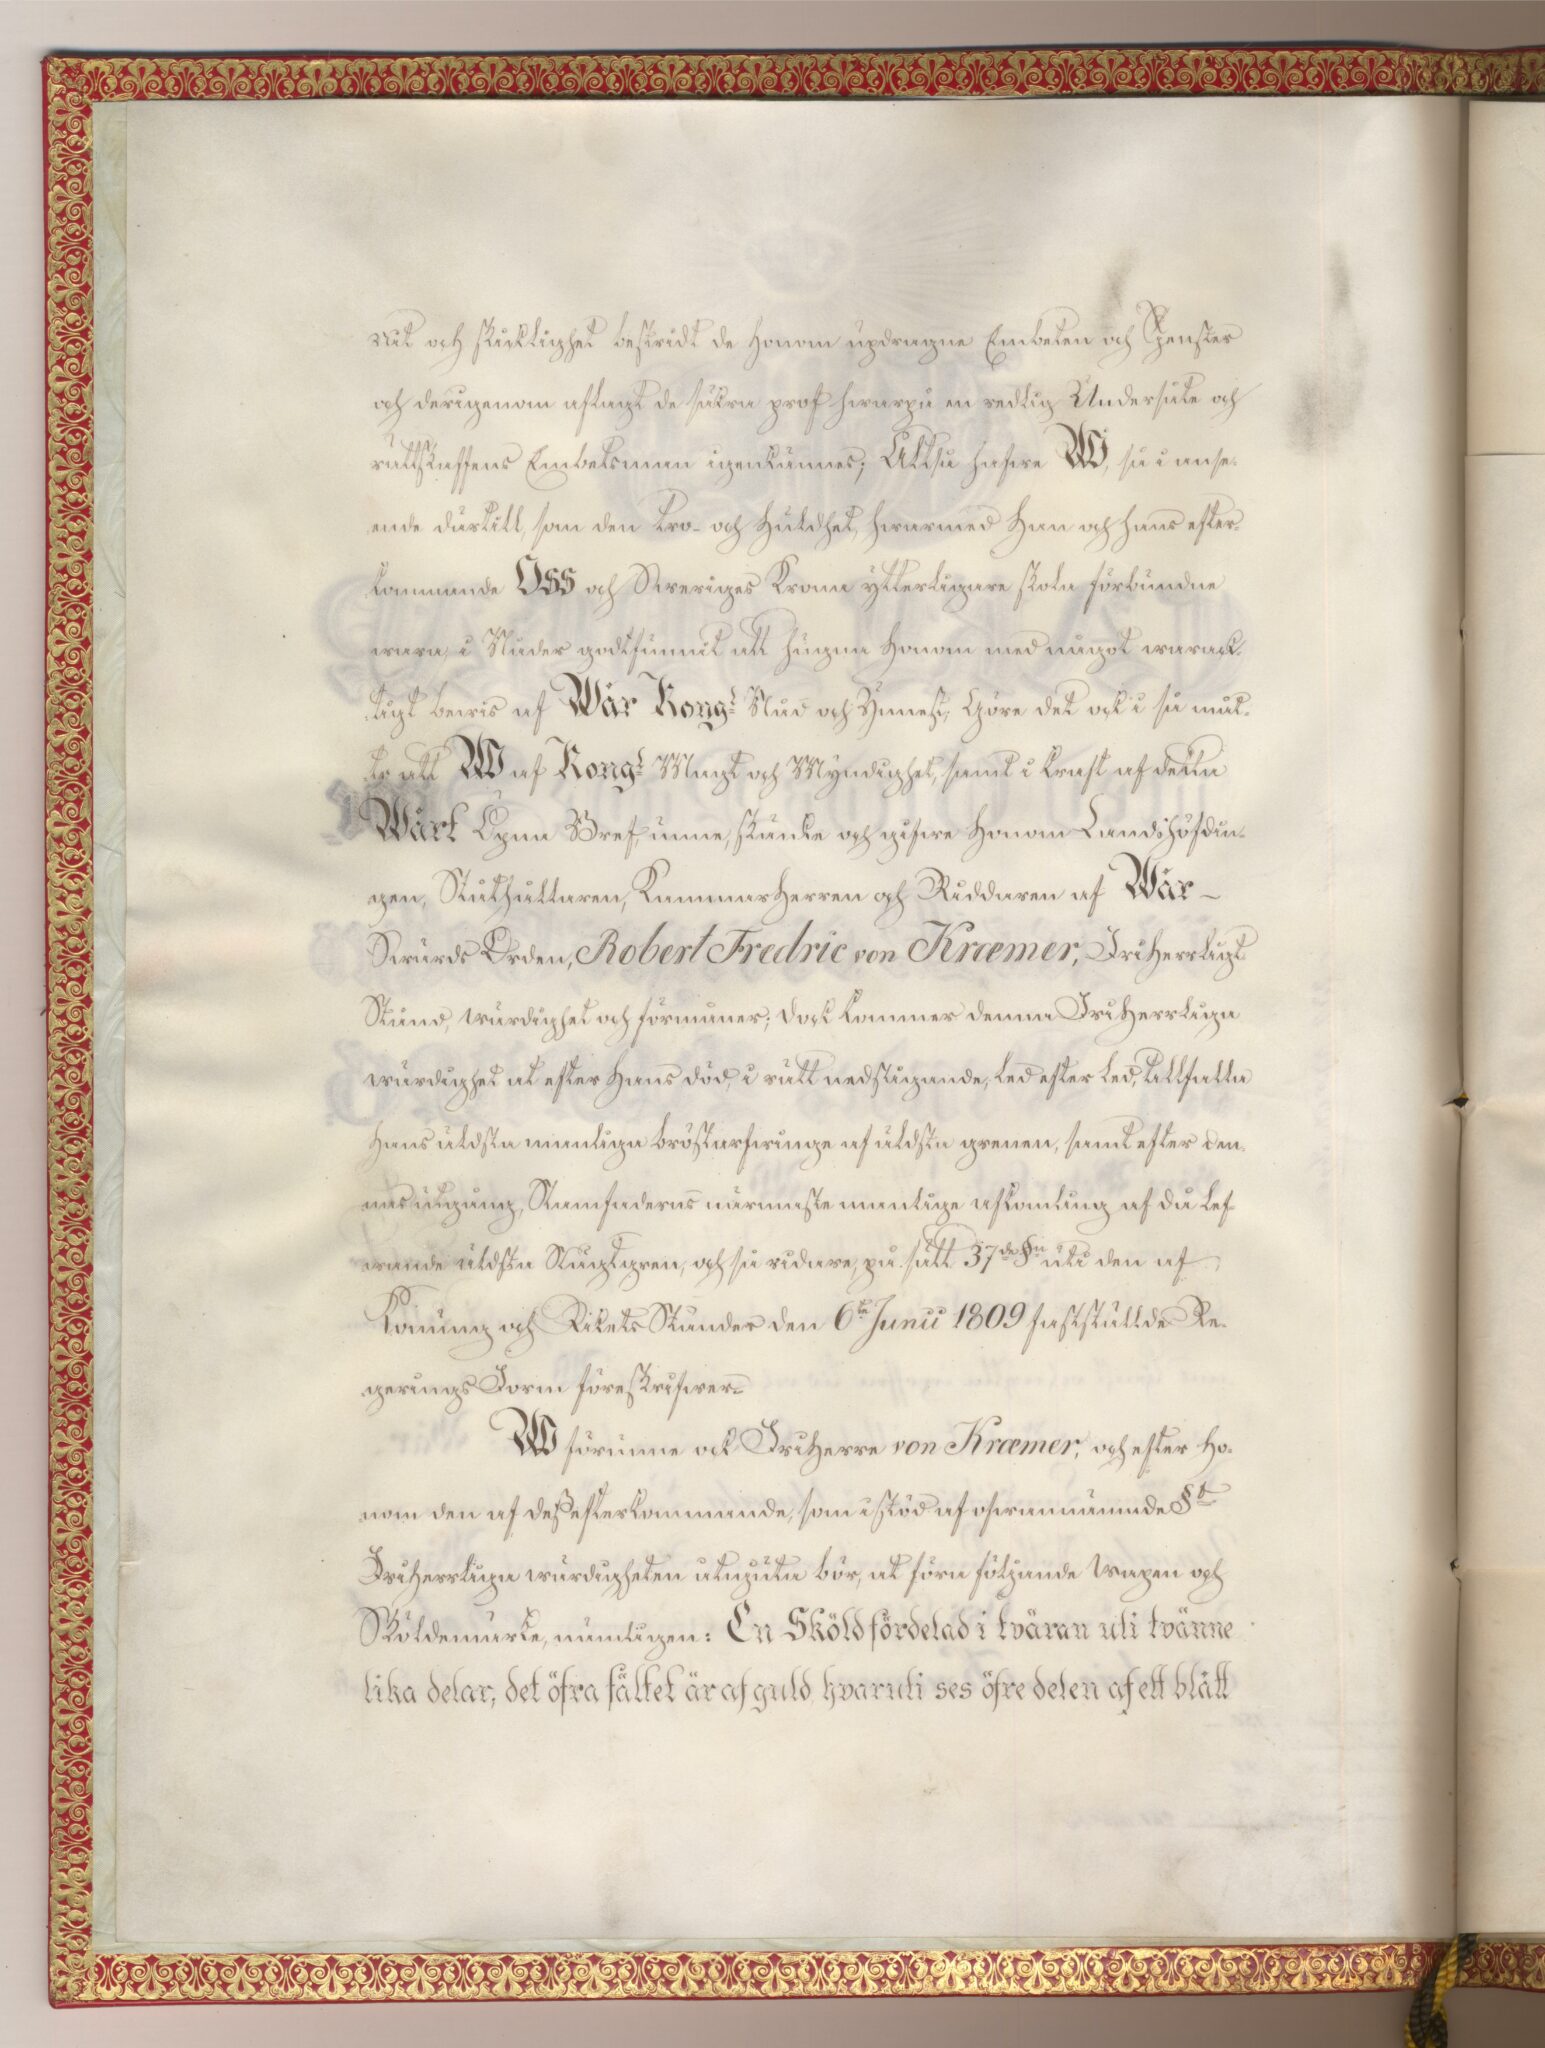 nit och skicklighet bestridt de Honom updragne Embeten och Tjenster
och derigenom aflagt de säkra prof hwarpå en redlig Undersåte och
rättskaffens Embetsman igenkännes; Alltså hafwe Wi, så i anse-
ende därtill, som den tro- och huldhet, hwarmed Han och hans efter-
kommande Oss och Sweriges Krona ytterligare skola förbundne
wara, i Nåder godtfunnit att hugna Honom med något warak-
tigt bewis af Wår Kongl. Nåd och Ynnest; Göre det ock i så måt-
to att Wi af Kongl. Magt och Myndighet, samt i kraft af detta
Wårt Öpna Bref, unne, skänke och gifwe Honom Landshöfdin-
gen, Ståthållaren, KammarHerren och Riddaren af Wår
Swärds Orden, Robert Fredric von Kræmer, FriHerrligt
Stånd, wärdighet och förmåner; dock kommer denna FriHerrliga
wärdighet at efter Hans död, i rätt nedstigande, led efter led, tillfalla
Hans äldsta manliga bröstarfwinge af äldsta grenen, samt efter den-
nas utgång, Stamfaderns närmaste manlige afkomling af då lef-
wande äldsta Slägtgren, och så widare, på sätt 37de §n uti den af
Konung och Rikets Ständer den 6te Junii 1809 fastställde Re-
gerings Form föreskrifwer.
Wi förunne ock FriHerre von Kræmer, och efter Ho-
nom den af dess efterkommande, som i stöd af ofwannämnde §t
FriHerrliga wärdigheten åtnjuta bör, at föra följande Wapen och
Sköldemärke, nämligen: En Sköld fördelad i tväran uti tvänne
lika delar; det öfra fältet är af guld, hvaruti ses öfre delen af ett blått